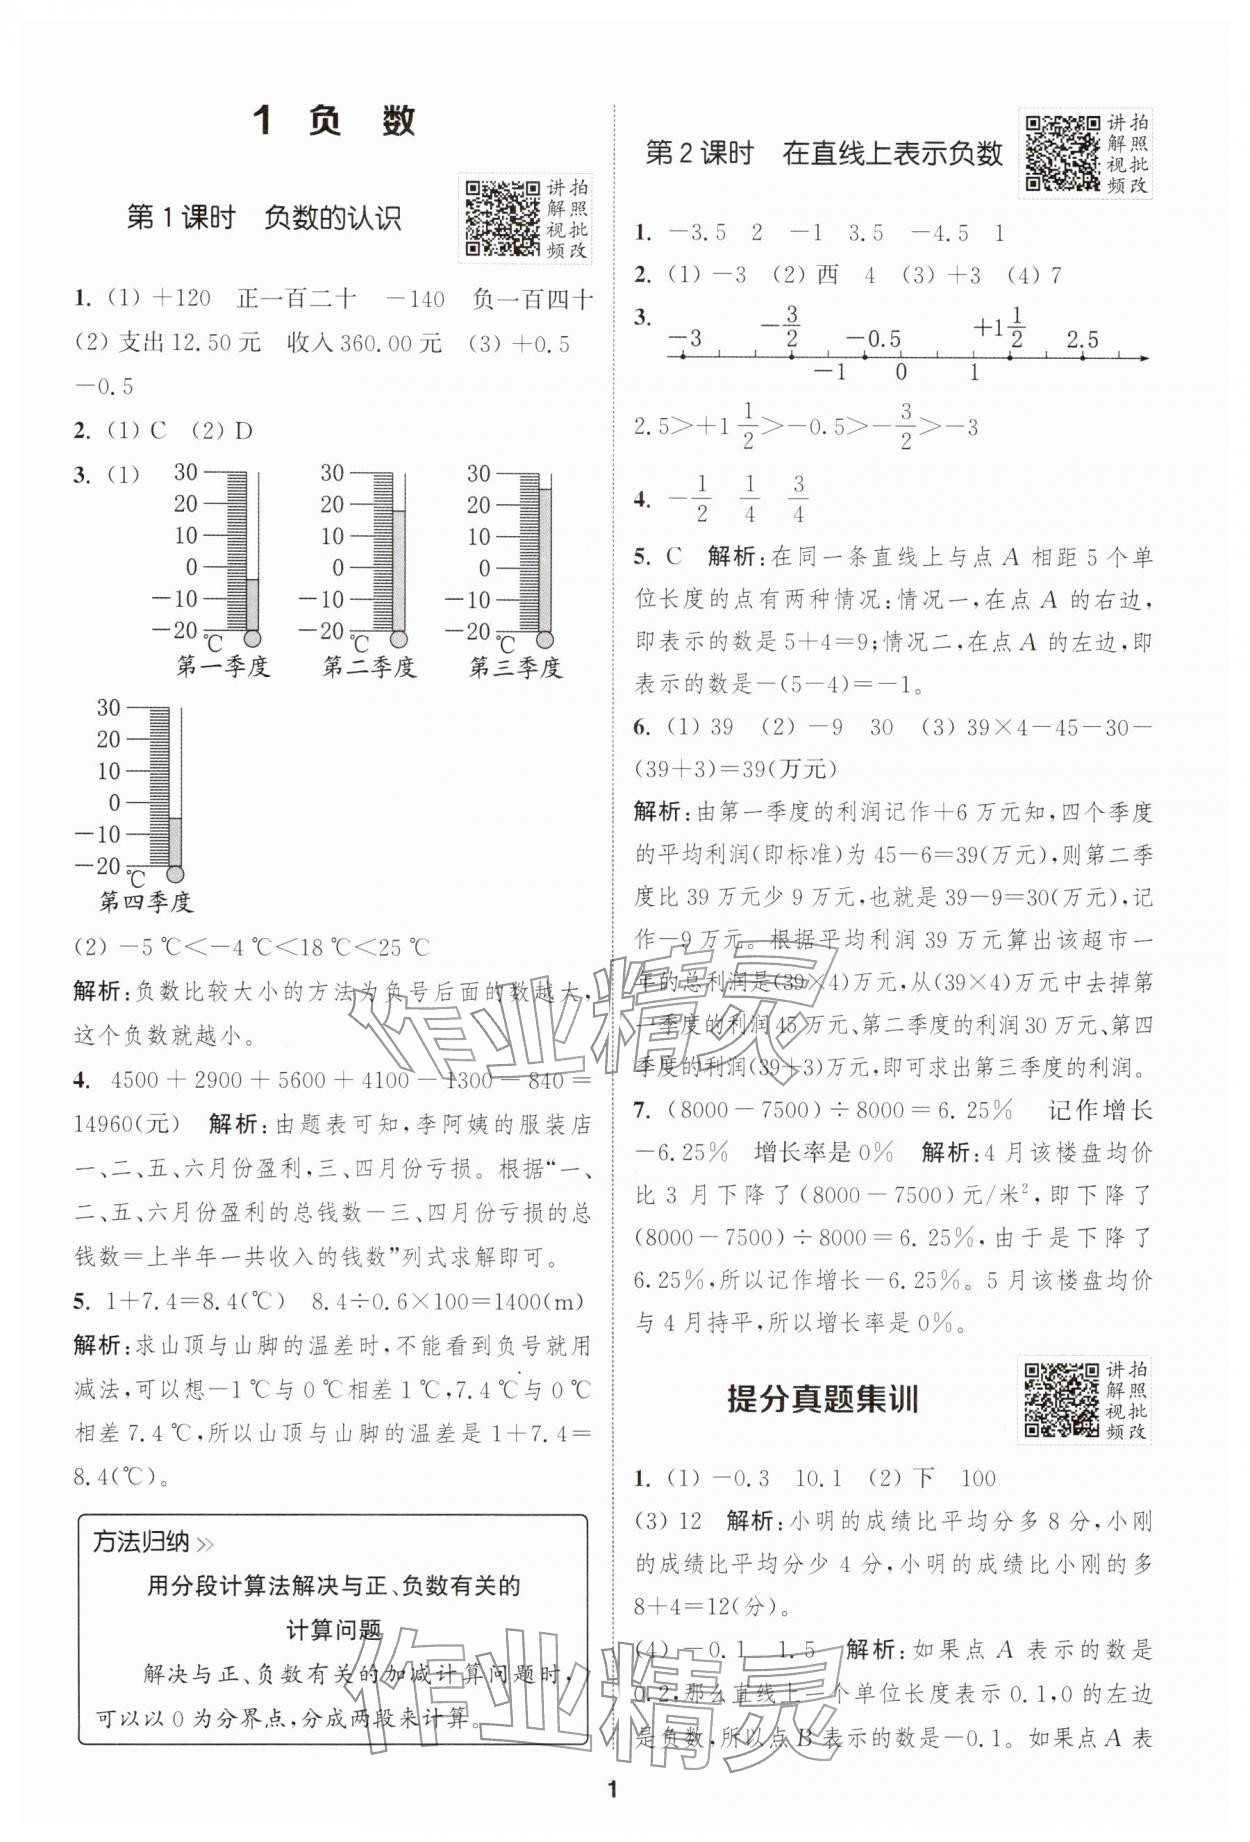 1 负 数
第1课时 负数的认识
讲拍
解照
视批
频改
1. (1) +120 正一百二十 -140 负一百四十
(2) 支出12.50元 收入360.00元 (3) +0.5
-0.5
2. (1) C (2) D
3. (1)
30 20 10 0 -10 -20 ℃ 第一季度
30 20 10 0 -10 -20 ℃ 第二季度
30 20 10 0 -10 -20 ℃ 第三季度
30 20 10 0 -10 -20 ℃ 第四季度
(2) -5℃<-4℃<18℃<25℃
解析:负数比较大小的方法为负号后面的数越大,
这个负数就越小。
4. 4500+2900+5600+4100-1300-840=
14960(元) 解析:由题表可知,李阿姨的服装店
一、二、五、六月份盈利,三、四月份亏损。根据“一、
二、五、六月份盈利的总钱数-三、四月份亏损的总
钱数=上半年一共收入的钱数”列式求解即可。
5. 1+7.4=8.4(℃) 8.4÷0.6×100=1400(m)
解析:求山顶与山脚的温差时,不能看到负号就用
减法,可以想-1℃与0℃相差1℃,7.4℃与0℃
相差7.4℃,所以山顶与山脚的温差是1+7.4=
8.4(℃)。
方法归纳 >>
用分段计算法解决与正、负数有关的
计算问题
解决与正、负数有关的加减计算问题时,
可以以0为分界点,分成两段来计算。
第2课时 在直线上表示负数
讲拍
解照
视批
频改
1. -3.5 2 -1 3.5 -4.5 1
2. (1) -3 (2) 西 4 (3) +3 (4) 7
3. -3 -3/2 -0.5 +1 1/2 2.5
-1 0 1
2.5>+1 1/2>-0.5>-3/2>-3
4. -1/2 1/4 3/4
5. C 解析:在同一条直线上与点A相距5个单
位长度的点有两种情况:情况一,在点A的右边,
即表示的数是5+4=9;情况二,在点A的左边,即
表示的数是-(5-4)=-1。
6. (1) 39 (2) -9 30 (3) 39×4-45-30-
(39+3)=39(万元)
解析:由第一季度的利润记作+6万元知,四个季度
的平均利润(即标准)为45-6=39(万元),则第二季
度比39万元少9万元,也就是39-9=30(万元),记
作-9万元。根据平均利润39万元算出该超市一
年的总利润是(39×4)万元,从(39×4)万元中去掉第
一季度的利润45万元、第二季度的利润30万元、第四
季度的利润(39+3)万元,即可求出第三季度的利润。
7. (8000-7500)÷8000=6.25% 记作增长
-6.25% 增长率是0% 解析:4月该楼盘均价
比3月下降了(8000-7500)元/米²,即下降了
(8000-7500)÷8000=6.25%,由于是下降了
6.25%,所以记作增长-6.25%。5月该楼盘均价
与4月持平,所以增长率是0%。
提分真题集训
讲拍
解照
视批
频改
1. (1) -0.3 10.1 (2) 下 100
(3) 12 解析:小明的成绩比平均分多8分,小刚
的成绩比平均分少4分,小明的成绩比小刚的多
8+4=12(分)。
(4) -0.1 1.5 解析:如果点A表示的数是
0.2,那么直线上一个单位长度表示0.1,0的左边
是负数,所以点B表示的数是-0.1。如果点A表
1
作业精灵
作业精灵